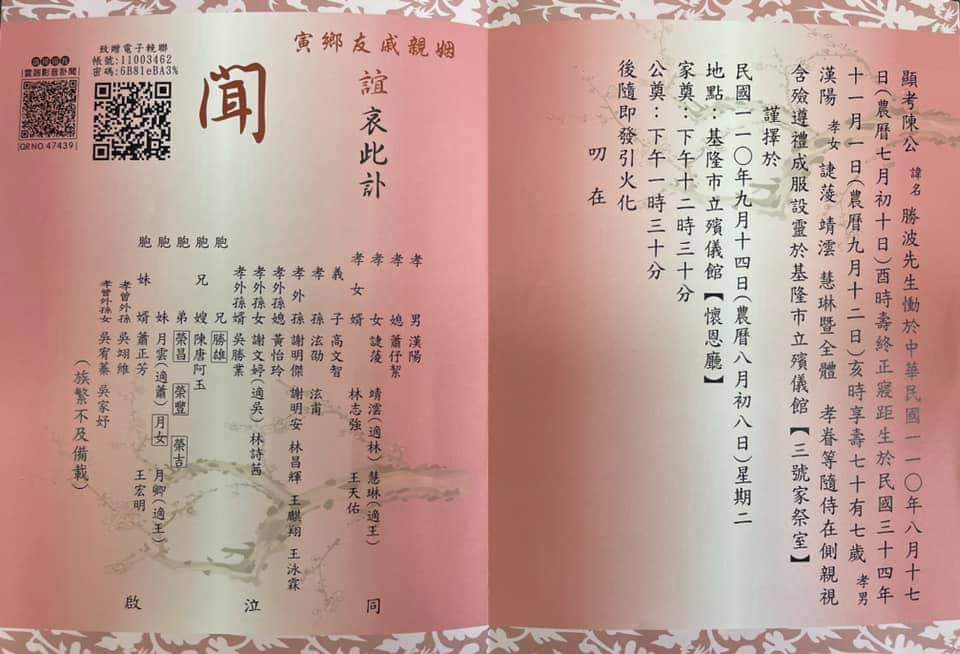 顯考陳公 諱名 勝波先生慟於中華民國一一〇年八月十七
日(農曆七月初十日)酉時壽終正寢距生於民國三十四年
十一月一日(農曆九月十二日)亥時享壽七十有七歲 孝男
漢陽 孝女 誱蔆 靖澐 慧琳暨全體 孝眷等隨侍在側親視
含殮遵禮成服設靈於基隆市立殯儀館【三號家祭室】
謹擇於
民國一一〇年九月十四日(農曆八月初八日)星期二
地點：基隆市立殯儀館【懷恩廳】
家奠：下午十二時三十分
公奠：下午一時三十分
後隨即發引火化
叨在
寅鄉友戚親姻
誼哀此訃
聞
致贈電子輓聯
帳號:11003462
密碼:6B81eBA3%
雲端影音訃聞
QR NO.47439
孝男 漢陽
孝媳 蕭伃絜
孝女 誱蔆 靖澐(適林) 慧琳(適王)
孝女婿 林志強 王天佑
義子 高文智
孝孫 泫劭 泫甫
孝外孫 謝明傑 謝明安 林昌輝 王麒翔 王泳霖
孝外孫媳 黃怡玲
孝外孫女 謝文婷(適吳) 林詩茜
孝外孫婿 吳勝業
胞兄 勝雄
胞兄嫂 陳唐阿玉
胞弟 榮昌 榮豐 榮吉
胞妹 月雲(適蕭) 月女 月卿(適王)
胞妹婿 蕭正芳 王宏明
孝曾外孫 吳翊維
孝曾外孫女 吳宥蓁 吳家妤
(族繁不及備載)
同泣啟